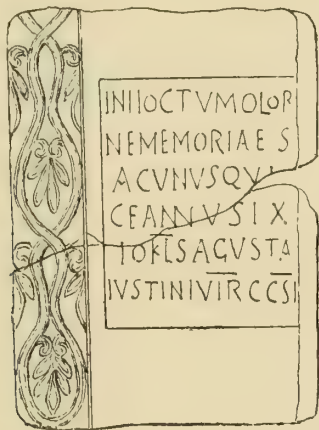 INIIOCTVMOLOP
NEMEMORIAE S
ACVNVSQVI
CEANNVSIX
IOKLSAGVSTA
IVSTINIVIRCCSI